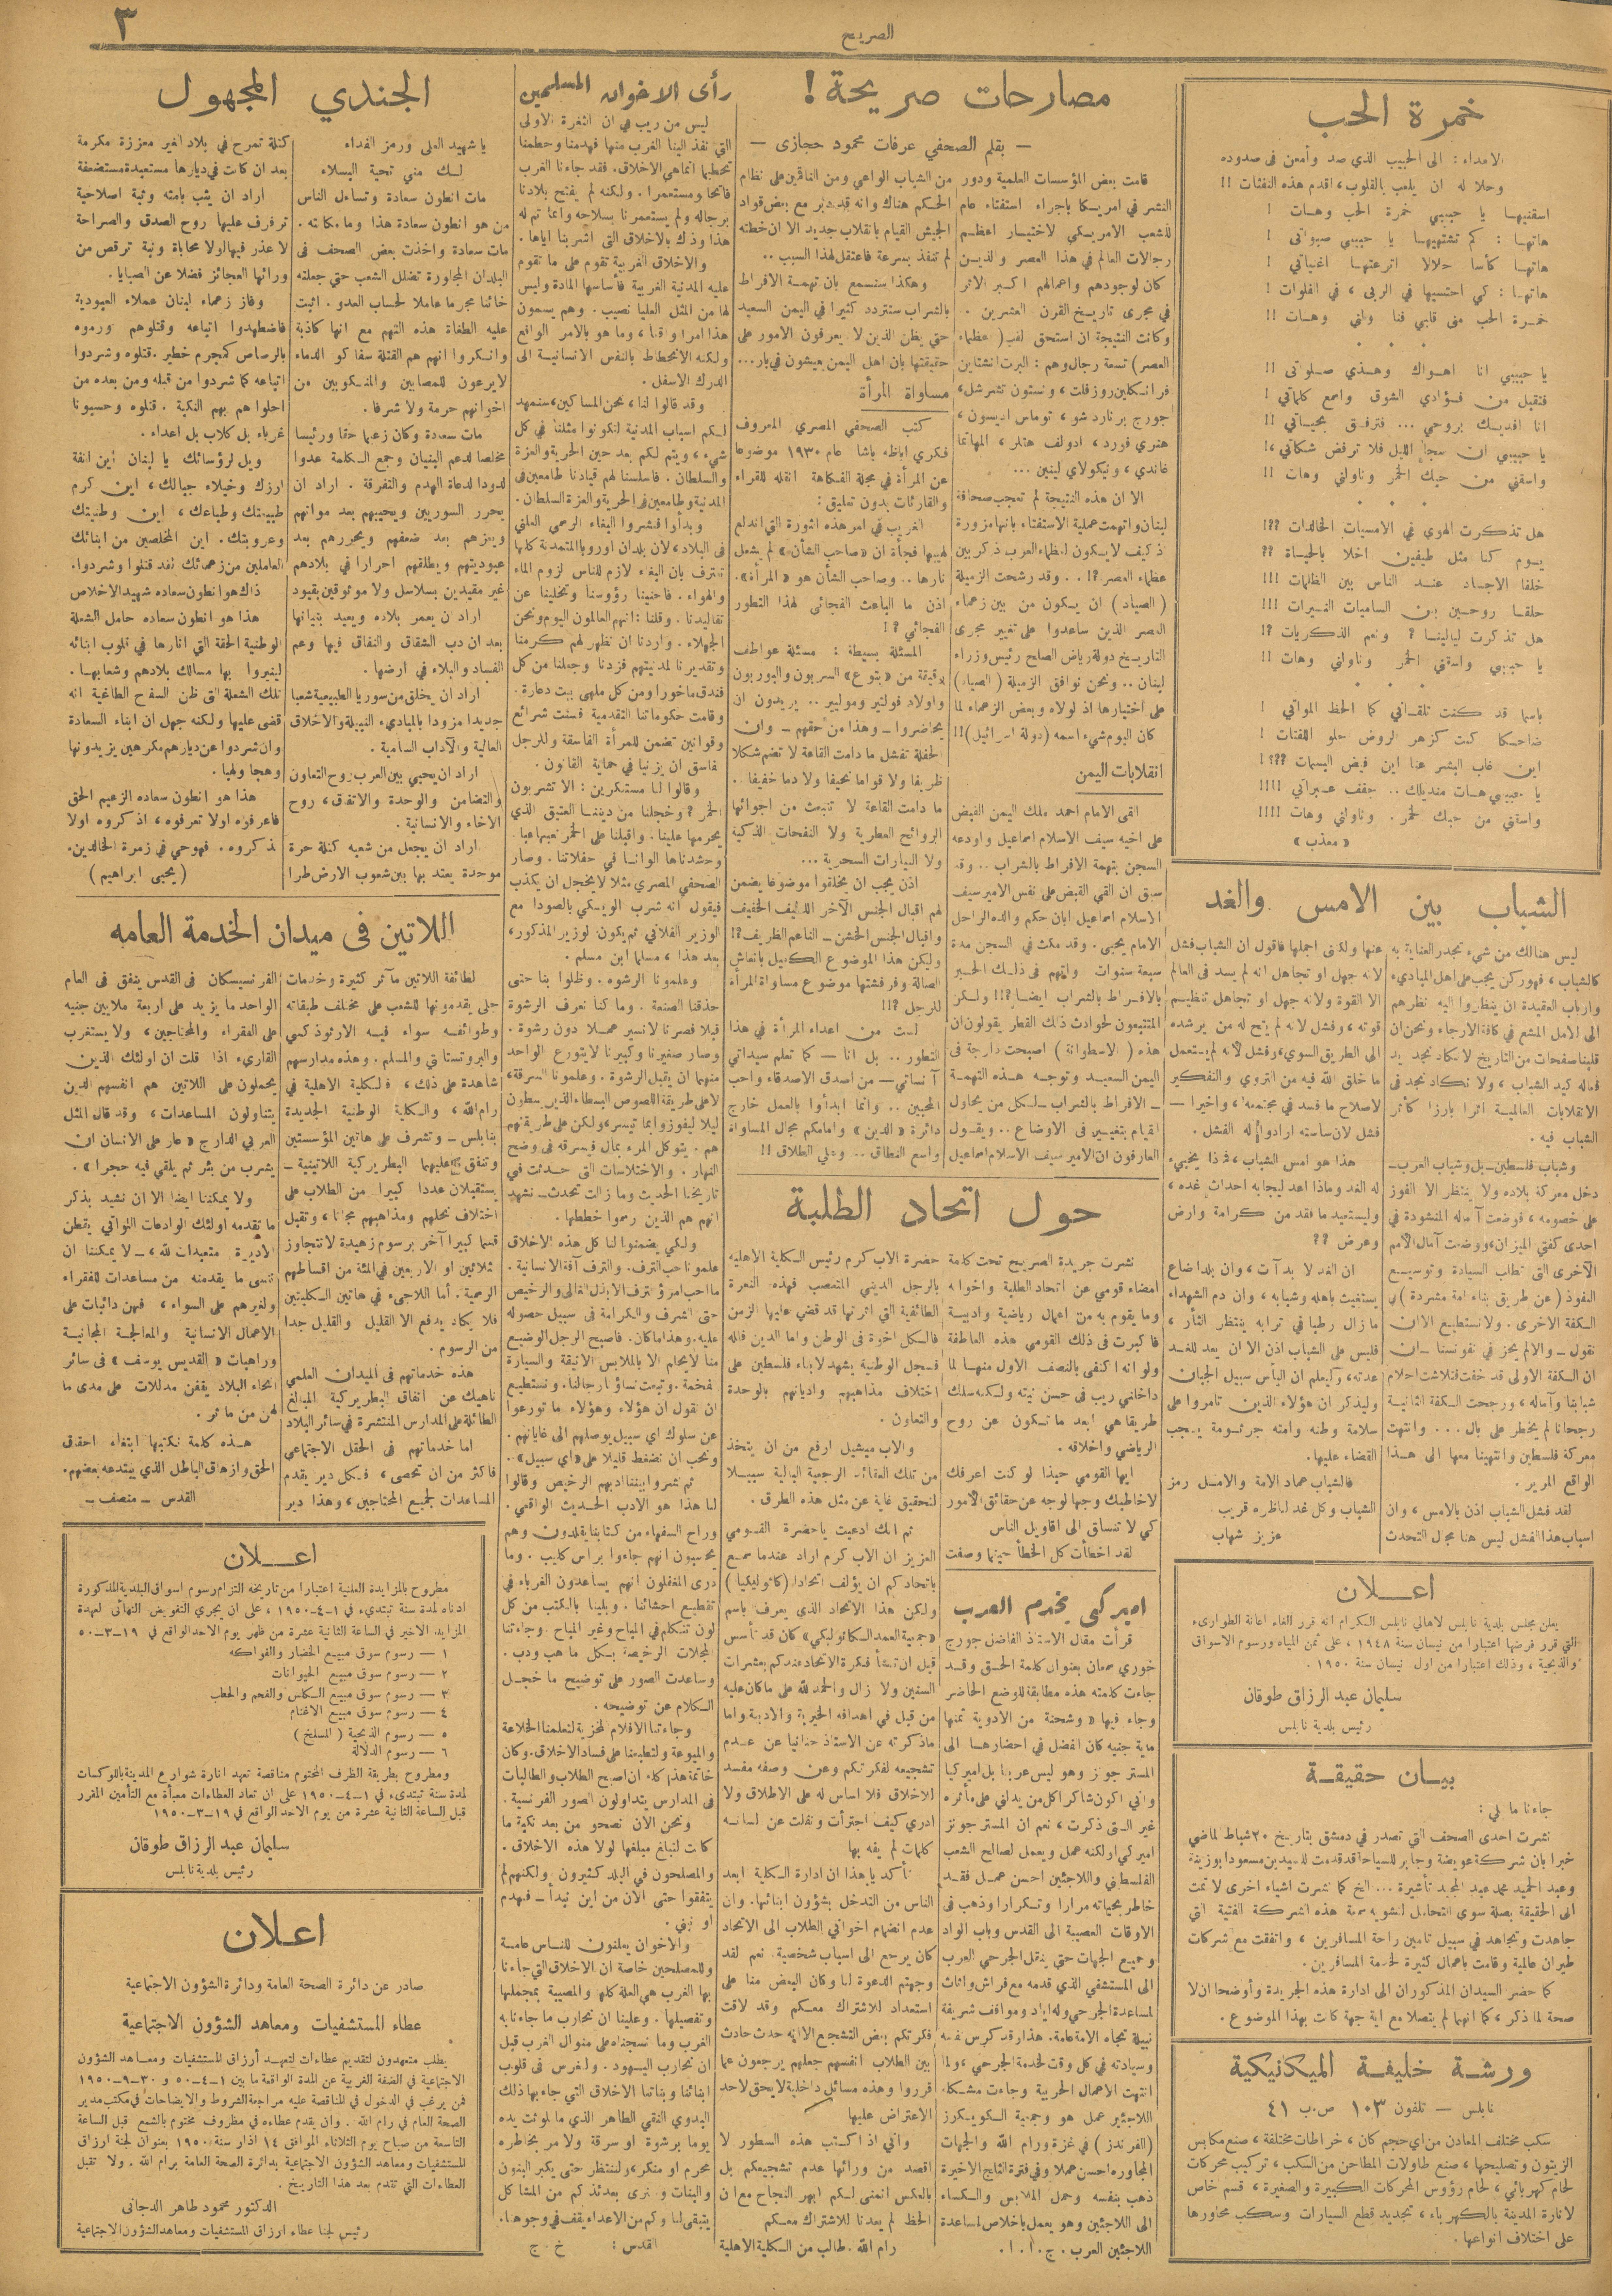 ٣
الصريح
خمرة الحب
الاهداء : الى الحبيب الذي صد وأمعن فى صدوده
وحلا له ان يلعب بالقلوب، اقدم هذه النفثات !!
اسقنيهـا يا حبيبي خمرة الحب وهـات !
هاتهـا : كم تشتهيهـا يا حبيبي صبواتى !
هاتهـا كأسا حلالا اترعتهـا اغنياتي !
هاتهـا : كي احتسيها في الربى ، في الفلوات !
خمـرة الحب منى قلبي فنا ولني وهـات !!
يا حبيبي انا اهـواك وهـذي صـلوتى !!
فتقبل من فـؤادي الشوق واسمع كلماتي !
انا افديـك بروحي ... فترفـق بحيـاتي !!
واسقني من حبك الخمر وناولني وهات !!
هل تذكرت الهوي في الامسيات الخالدات ؟؟!
يـوم كنا مثل طيفين اخلا بالحيـاة ؟؟
خلفا الاجساد عنـد الناس بين الظلمات !!!
حلقـا روحـين بـين الساميات النـيرات !!!
هل تذكرت ليالينـا ؟ ونعم الذكريات ؟!
يا حبيبي واسقني الخمر وناولني وهات !!
باسما قد كنت تلقـاني كما الحظ المواتي !
ضاحـكا كنت كزهر الروض حلو اللفتات !
اين غاب البشر عنا اين فيض البسمات ؟؟؟!
يا حبيبي هـات منديلك .. جفف عـبراتي !!!!
واسقني من حبك لخمر . وناولني وهات !!!!
« معذب »
الشباب بين الامس والغد
ليس هنالك من شيء تجدر العناية به
كالشباب ، فهو ركن يجب على اهل المباديء
وارباب العقيدة ان ينظروا اليه نظرهم
الى الامل المشع في كافة الارجاء ونحن ان
قلبنا صفحات من التاريخ لانكاد نجد يد
فعاله كيد الشباب ، ولا نكاد نجد فى
الانقلابات العالمية اثرا بارزا كأثر
الشباب فيه .
وشباب فلسطين ـ بل وشباب العرب ـ
دخل معركة بلاده ولا ينتظر الا الفوز
على خصومه ، فوضعت آماله المنشودة في
احدى كفتي الميزان، ووضعت آمال الأمم
الآخرى التى تطلب السيادة وتوسيـع
النفوذ ( عن طريق بناء امة مشردة ) في
الكفة الاخرى . ولا نستطيع الا ان
نقول ـ والالم يحز في نفوسنا ـ ان
ان الكفة الاولى قد خفت فتلاشت احلام
شبابنا وآماله ، ورجحت الكفة الثانيـة
رجحانا لم يخطر على بال ... وانتهت
معركة فلسطين وانتهينا معها الى هـذا
الواقع المرير .
لقد فشل الشباب اذن بالامس ، وان
اسباب هذا الفشل ليس هنا مجال التحدث
عنها ولكنى اجملها فاقول ان الشباب فشل
لانه جهل او تجاهل انه لم يسد فى العالم
الا القوة ولانه جهل او تجاهل تنظيم
قوته ، وفشل لانه لم يتح له من يرشده
الى الطريق السوي، وفشل لأنه لم يستعمل
ما خلق الله فيه من التروي والتفكير
لاصلاح ما فسد في مجتمعه، واخيرا ـ
فشل لان ساسته ارادوا له الفشل .
هذا هو امس الشباب ، فماذا يخبيء
له الغد وماذا اعد ليجابه احداث غده ،
وليستعيد ما فقد من كرامة وارض
وعرض ؟؟
ان الغد لا بد آت ، وان بلدا ضاع
يستغيث باهله وشبابه ، وان دم الشهداء
ما زال رطبا في ترابه ينتظر الثأر ،
فليس على الشباب اذن الا ان يعد للغـد
عدته، وليعلم ان اليأس سبيل الجبان
وليذكر ان هؤلاء الذين تامروا على
سلامة وطنه وامته جرثـومة يـجب
القضاء عليها .
فالشباب عماد الامة والامـل رمز
الشباب وكل غد لناظره قريب
عزيز شهاب
اعـــلان
يعلن مجلس بلدية نابلس لاهالي نابلس الكرام انه قرر الغاء اعانة الطوارىء
التي قرر فرضها اعتبارا من نيسان سنة ١٩٤٨ ، على ثمن المياه ورسوم الاسواق
والذبحية ، وذلك اعتبارا من اول نيسان سنة ١٩٥٠ .
سليمان عبد الرزاق طوقان
رئيس بلدية نابلس
بيـان حقيقـة
جاءنا ما يلي :
نشرت احدى الصحف التي تصدر في دمشق بتاريخ ٢٠ شباط لماضي
خبرا بان شركة عويضة وجابر للسياحة قد قدمت للسيدين مسعود ابوزينة
وعبد الحميد محمد عبد المجيد تأشيرة ... الخ كما نشرت اشياء اخرى لا تمت
الى الحقيقة بصلة سوى التحامل لتشويه سمعة هذه الشركة الفتية التي
جاهدت وتجاهد في سبيل تامين راحة المسافرين ، واتفقت مع شركات
طيران عالمية وقامت باعمال كثيرة لخدمة المسافرين .
كما حضر السيدان المذكوران الى ادارة هذه الجريدة وأوضحا ان لا
صحة لما ذكر ، كما انهما لم يتصلا مع اية جهة كانت بهذا الموضوع .
ورشـة خليفـة الميكانيكية
نابلس — تلفون ١٠٣ ص.ب ٤١
سكب مختلف المعادن من اي حجم كان ، خراطات مختلفة ، صنع مكابس
الزيتون وتصليحها ، صنع طاولات المطاحن من السكب ، تركيب محركات
لحام كهربائي ، لحام رؤوس المحركات الكبيرة والصغيرة ، قسم خاص
لانارة المدينة بالكهرباء ، تجديد قطع السيارات وسكب محاورها
على اختلاف انواعها .
مصارحات صريحة !
— بقلم الصحفي عرفات محمود حجازى —
قامت بعض المؤسسات العلمية ودور
النشر في امريـكا باجراء استفتاء عام
للشعب الامريـكي لاختيـار اعظـم
رجالات العالم في هذا العصر والذيـن
كان لوجودهم واعمالهم اكـبر الاثر
في مجرى تاريـخ القرن العشرين .
وكانت النتيجة ان استحق لقب ( عظماء
العصر ) تسعة رجال وهم : البرت انشتاين
فرانـكلين روزفلت ، ونستون تشرشل،
جورج برنارد شو ، توماس اديسون ،
هنري فورد ، ادولف هتلر ، المهاتما
غاندي ، ونيكولاي لينين ...
الا ان هذه النتيجة لم تعجب صحافة
لبنان واتهمت عملية الاستفتاء بانها مزورة
اذ كيف لا يـكون لعظماء العرب ذكر بين
عظماء العصر ؟! . . وقد رشحت الزميلة
( الصياد ) ان يـكون من بين زعماء
العصر الذين ساعدوا على تغيير مجرى
التاريـخ دولة رياض الصلح رئيس وزراء
لبنان .. ونحن نوافق الزميلة ( الصياد )
على أختيارها اذ لولاه وبعض الزعماء لما
كان اليوم شيء اسمه ( دولة اسرائيل ) !!
انقلابات اليمن
القى الامام احمد ملك اليمن القبض
على اخيه سيف الاسلام اسماعيل واودعه
السجن بتهمة الافراط بالشراب . . وقد
سبق ان القي القبض على نفس الامير سيف
الاسلام اسماعيل ابان حكم والده الراحل
الامام يحيى . وقد مكث في السجن مدة
سبعة سنوات واتهم فى ذلـك الحـين
بالافـراط بالشراب ايضـا ؟!! ولـكن
المتتبعون لحوادث ذلك القطر يقولون ان
هذه ( الاسطوانة ) اصبحت دارجة فى
اليمن السعيـد وتوجـه هـذه التهمـة
ـ الافراط بالشراب ـ لـكل من يحاول
القيام بتغيـير فى الاوضاع .. ويقـول
العارفون ان الامير سيف الاسلام اسماعيل
من الشباب الواعي ومن الناقمين على نظام
الحكم هناك وانه قد دبر مع بعض قواد
الجيش القيام بانقلاب جديد الا ان خطته
لم تنفذ بسرعة فاعتقل لهذا السبب ..
وهكذا سنسمع بان تهمـة الافراط
بالشراب ستتردد كثيرا في اليمن السعيد
حتى يظن الذين لا يعرفون الامور على
حقيقتها بان اهل اليمن يعيشون في بار...
مساواة المرأة
كتب الصحفي المصري المعروف
فكري اباظه باشا عام ١٩٣٠ موضوعا
عن المرأة في مجلة الفكاهة انقله للقراء
والقارئات بدون تعليق :
الغريب في امر هذه الثورة التى اندلع
لهيبها فجأة ان « صاحب الشأن » لم يشعل
نارها .. وصاحب الشأن هو « المرأة» .
اذن ما الباعث الفجائى لهذا التطور
الفجائي ؟ !
المسئلة بسيطة : مسئلة عواطف
رقيقة من « بتوع » السربون واليوربون
واولاد فولتير وموليير .. يريدون ان
يحاضروا ـ وهذا من حقهم ـ وان
الحفلة تفشل ما دامت القاعة لا تضم شكلا
ظريفا ولا قواما نحيفا ولا دما خفيفا .
ما دامت القاعة لا تنبعث من اجوائها
الروائح العطرية ولا النفحات الذكية
ولا التيارات السحرية ...
اذن يجب ان يخلقوا موضوعا يضمن
لهم اقبال الجنس الآخر اللطيف الخفيف
واقبال الجنس الخشن ـ الناعم الظريف ؟!
وليكن هذا الموضوع الكفيل بانعاش
الصالة وفرفشتها موضوع مساواة المرأة
للرجل ؟!!
لست من اعداء المرأة في هذا
التطور .. بل انا — كما تعلم سيداتي
آنساتي — من اصدق الاصدقاء واحب
المحبين .. وانما ابدأوا بالعمل خارج
دائرة « الدين » وامامكم مجال المساواة
واسع النطاق . . وعلي الطلاق !!
حول اتحاد الطلبة
نشرت جريدة الصريح تحت كلمة
امضاء قومي عن اتحاد الطلبة واخواه
وما يقوم به من اعمال رياضية وادبيـة
فاكبرت فى ذلك القومي هذه العاطفة
ولو انه اكتفى بالنصف الاول منهـا لما
داخلني ريب فى حسن نيته ولكنه سلك
طريقا هي ابعد ما تكون عن روح
الرياضي واخلاقه .
ايها القومي حبذا لو كنت اعرفك
لاخاطبك وجها لوجه عن حقائق الأمور
كي لا تنساق الى اقاويل الناس
لقد اخطأت كل الخطأ حينما وصفت
حضرة الاب كرم رئيس الكلية الاهلية
بالرجل الديني المتعصب فهذه النعرة
الطائفية التي اثرتها قد قضي عليها الزمن
فالـكل اخوة فى الوطن واما الدين فلله
فسجل الوطنية يشهد لابناء فلسطين على
اختلاف مذاهبهم واديانهم بالوحدة
والتعاون .
والاب ميشيل ارفع من ان يتخذ
من تلك العقائد الرجعية البالية سبيـلا
لتحقيق غاية عن مثل هذه الطرق .
ثم انك ادعيت ياحضرة القـومي
العزيز ان الاب كرم اراد عندما سمع
باتحادكم ان يؤلف اتحادا ( كاثوليكيا )
ولكن هذا الاتحاد الذي يعرف باسم
« جمعية العمد الكاثوليكي » كان قد تأسس
قبل ان تنشأ فكرة الاتحاد عندكم بعشرات
السنين ولا زال والحمد لله على ما كان عليه
من قبل في اهدافه الخيرية والادبية واما
ماذكرته عن الاستاذ حنانيا عن عـدم
تشجيعه لفكرتكم وعن وصفه مفسد
الاخلاق فلا اساس له على الاطلاق ولا
ادري كيف اجترأت ونقلت عن لسانـه
كلمات لم يفه بها
تأكد يا هذا ان ادارة الكلية ابعد
الناس من التدخل بشؤون ابنائها . وان
عدم انضمام اخواتي الطلاب الى الاتحاد
كان يرجع الى اسباب شخصية. نعم لقد
وجهتم الدعوة لنا وكان البعض منا على
استعداد للاشتراك معكم وقد لاقت
فكرتكم بعض التشجيع الا انه حدث حادث
بين الطلاب انفسهم جعلهم يرجعون عما
قرروا وهذه مسائل داخلية لا يحق لاحد
الاعتراض عليها
واني اذ اكتب هذه السطور لا
اقصد من ورائها عدم تشجيعكم بل
بالعكس اتمنى لكم ابهر النجاح مع ان
الحظ لم يعدنا للاشتراك معـكم
رام الله . طالب من الـكلية الاهلية
اميركي يخدم العرب
قرأت مقال الاستاذ الفاضل جورج
خوري سمعان بعنوان كلمة الحـق وقـد
جاءت كلمته هذه مطابقة للوضع الحاضر
وجاء فيها « وشحنة من الادوية ثمنها
ماية جنيه كان الفضل في احضارهـا الى
المستر جونز وهو ليس عربيا بل اميركيا
واني اكون شاكرا لكل من يدلني على مأثره
غير التى ذكرت ، نعم ان المستر جونز
اميركي ولكنه عمل ويعمل لصالح الشعب
الفلسطيني واللاجئين احسن عمـل فقـد
خاطر بحياته مرارا وتـكرارا وذهب فى
الاوقات العصيبة الى القدس وباب الواد
وجميع الجهات حتى ينقل الجرحي العرب
الى المستشفى الذي قدمه مع فراش واثاث
لمساعدة الجرحي وله اياد ومواقف شريفة
نبيلة تجاه الامة عامة. هذا وقد كرس نفسه
وسيارته في كل وقت لخدمة الجرحي ، ولما
انتهت الاعمال الحربية وجاءت مشـكلة
اللاجئين عمل هو وجمعية الـكويـكرز
( الفرندز ) في غزة ورام الله والجهات
المجاوره احسن عملا وفي فترة الثلج الاخيرة
ذهب بنفسه وحمل الملابس والكساء
الى اللاجئين وهو يعمل باخلاص لمساعدة
اللاجئين العرب . ج . ا . ا .
رأى الاخوان المسلمين
ليس من ريب في ان الثغرة الاولى
التي نفذ الينا الغرب منها فهدمنا وحطمنا
تحطيما انما هي الاخلاق. فقد جاءنا الغرب
فاتحا ومستعمرا . ولكنه لم يفتح بلادنا
برجاله ولم يستعمرنا بسلاحه وانما تم له
هذا وذاك بالاخلاق التى اشربنا اياها .
والاخلاق الغربية تقوم على ما تقوم
عليه المدنية الغربية فأساسها المادة وليس
لها من المثل العليا نصيب . وهم يسمون
هذا امرا واقعا ، وما هو بالامر الواقع
ولكنه الانحطاط بالنفس الانسانيـة الى
الدرك الاسفل .
وقد قالوا لنا، نحن المساكين، سنمهد
لـكم اسباب المدنية لتكونوا مثلنا في كل
شيء ، ويتم لكم بعد حين الحرية والعزة
والسلطان . فاسلسنا لهم قيادنا طامعين فى
المدنية وطامعين فى الحرية والعزة السلطان.
وبدأوا فنشروا البغاء الرسمي العلني
فى البلاد، لان بلدان اوروبا المتمدنة كلها
تعترف بان البغاء لازم للناس لزوم الماء
والهواء . فاحنينا رؤوسنا وتخلينا عن
تقاليدنا . وقلنا : انهم العالمون اليوم ونحن
الجهلاء . واردنا ان نظهر لهم كرمنا
وتقديرنا لمدنيتهم فزدنا وجعلنا من كل
فندق ماخورا ومن كل ملهى بيت دعارة .
وقامت حكوماتنا التقدمية فسنت شرائع
وقوانين تضمن للمرأة الفاسقة وللرجل
الفاسق ان يزنيا في حماية القانون .
وقالوا لنـا مستنكرين : الا تشربون
الخمر ؟ وخجلنا من ديننـا العتيق الذي
يحرمها علينا . واقبلنا على الخمر نعبها عبا .
وحشدناها الوانـا في حفلاتنا . وصار
الصحفي المصري مثلا لا يخجل ان يكذب
فيقول انه شرب الويسكي بالصودا مع
الوزير الفلاني ثم يكون لوزير المذكور،
بعد هذا ، مسلما ابن مسلم .
وعلمونا الرشوه . وظلوا بنا حتى
حذقنا الصنعة . وما كنا نعرف الرشوة
قبلا فصرنا لا نسير عمـلا دون رشوة .
وصار صغيرنا وكبيرنا لا يتورع الواحد
منهما ان يقبل الرشوة . وعلمونا السرقة،
لا على طريقة اللصوص البسطاء الذين يسطون
ليلا ليفوزوا بما تيسر، ولكن على طريقتهم
هم . يتوكل المرء بمال فيسرقه في وضح
النهار . والاختلاسات التى حـدثت في
تاريخنا الحديث وما زالت تحدث ـ تشهد
انهم هم الذين رسموا خططها .
ولـكي يضمنوا لنا كل هذه الاخلاق
علمونا حب الترف. والترف آفة الانسانية.
ما احب امرؤ الترف الا بذل الغالي والرخيص
حتى الشرف والكرامة في سبيل حصوله
عليه . وهذا ما كان . فاصبح الرجل الوضيع
منا لا يحلم الا بالملابس الانيقة والسيارة
الفخمة . وتبعت نساؤنا رجالنا . ونستطيع
ان نقول ان هؤلاء وهؤلاء ما تورعوا
عن سلوك اي سبيل يوصلهم الى غاياتهم .
ونحب ان نضغط قليلا على « اي سبيل » .
ثم نشروا بيننا ادبهم الرخيص وقالوا
لنا هذا هو الادب الحـديث الواقعي .
وراح السفهاء من كتابنا يقلدون وهم
يحسبون انهم جاءوا براس كليب . وما
درى المغفلون انهم يساعدون الغرباء في
تقطيـع احشائنا . وبلينا بالـكتب من كل
لون تتـكلم في المباح وغير المباح . وجاءتنا
المجلات الرخيصة بـكل ما هب ودب .
وساعدت الصور على توضيح ما خجـل
الـكلام عن توضيحه .
وجاءتنا الافلام لمخزية لتعلمنا الخلاعة
والميوعة ولتطبعنا على فساد الاخلاق. وكان
خاتمة هذا كله ان اصبح الطلاب والطالبات
فى المدارس يتداولون الصور الفرنسية .
ونحن الآن نصحو من بعد نكبة ما
كانت لتبلغ مبلغها لولا هذه الاخلاق .
والمصلحون في البلد كثيرون . ولكنهم لم
يتفقوا حتى الآن من اين نبدأ ـ فنهدم
او نبني .
والاخوان يعلنون للنـاس عامـة
وللمصلحين خاصة ان الاخلاق التي جاءنا
بها الغرب هي العلة كلها والمصيبة بمجملها
وتفصيلها . وعلينا ان نحارب ما جاءنا به
الغرب وما نسجناه على منوال الغرب قبل
ان نحارب اليـهود . ولنغرس فى قلوب
ابنائنا وبناتنا الاخلاق التي جاء بها ذلك
البدوي النقي الطاهر الذي ما لوثت يده
يوما برشوة او سرقة ولا مر بخاطره
محرم او منكر، ولننتظر حتى يكبر البنون
والبنات ونرى بعدئذ كم من المشاكل
يتبقى لنا وكم من الاعداء يقف في وجوهنا.
القدس : خ . ج
الجندي المجهول
يا شهيد العلى ورمز الفداء
لـك مني تحية البسلاء
مات انطون سعادة وتساءل الناس
من هو انطون سعادة هذا وما مكانته .
مات سعادة واخذت بعض الصحف فى
البلدان المجاورة تضلل الشعب حتى جعلته
خائنا مجرما عاملا لحساب العدو . اثبت
عليه الطغاة هذه التهم مع انها كاذبة
وانـكروا انهم هم القتلة سفاكو الدماء
لا يرعون للمصابين والمنـكوبين من
اخوانهم حرمة ولا شرفا .
مات سعادة وكان زعيما حقا ورئيسا
مخلصا لدعم البنيان وجمع الـكلمة عدوا
لدودا لدعاة الهدم والتفرقة . اراد ان
يحرر السوريين ويحييهم بعد مواتهم
ويعزهم بعد ضعفهم ويحررهم بعد
عبوديتهم ويطلقهم احرارا في بلادهم
غير مقيدين بسلاسل ولا موثوقين بقيود
اراد ان يعمر بلاده ويعيد بنيانها
بعد ان دب الشقاق والنفاق فيها وعم
الفساد والبلاء في ارضها .
اراد ان يخلق من سوريا الطبيعية شعبا
جديدا مزودا بالمباديء النبيلة والاخلاق
العالية والآداب السامية .
اراد ان يحيي بين العرب روح التعاون
والتضامن والوحدة والاتفاق ، روح
الاخاء والانسانية .
اراد ان يجعل من شعبه كتلة حرة
موحدة يعتد بها بين شعوب الارض طرا
كتلة تمرح في بلاد الغير معززة مكرمة
بعد ان كانت في ديارها مستعبدة مستضعفة
اراد ان يثب بامته وثبة اصلاحية
ترفرف عليها روح الصدق والصراحة
لا عذر فيها ولا محاباة وثبة ترقص من
ورائها العجائز فضلا عن الصبايا .
وفاز زعماء لبنان عملاء العبودية
فاضطهدوا اتباعه وقتلوهم ورموه
بالرصاص كمجرم خطير . قتلوه وشردوا
اتباعه كما شردوا من قبله ومن بعده من
احلوا هم بهم النكبة . قتلوه وحسبونا
غرباء بل كلاب بل اعداء .
ويل لرؤسائك يا لبنان أين انفة
ارزك وخيلاء جبالك ، اين كرم
طبيعتك وطباعك ، اين وطنيتك
وعروبتك . اين المخلصين من ابنائك
العاملين من زعمائك لقد قتلوا وشردوا.
ذاك هو انطون سعاده شهيد الاخلاص
هذا هو انطون سعاده حامل الشعلة
الوطنية الحقة التي انارها في قلوب ابنائه
لينيروا بها مسالك بلادهم وشعابهـا .
تلك الشعلة التى ظن السفح الطاغية انه
قضى عليها ولكنه جهل ان ابناء السعادة
وان شردوا عن ديارهم مكرهين يزيدونها
وهجا ولهبا .
هذا هو انطون سعاده الزعيم الحق
فاعرفوه اولا تعرفوه ، اذكروه اولا
تذكروه . فهو حي في زمرة الخالدين.
( يحيى ابراهيم )
اللاتين فى ميدان الخدمة العامه
لطائفة اللاتين مآثر كثيرة وخدمات
جلى يقدمونها للشعب على مختلف طبقاته
وطوائفـه سواء فيـه الارثوذكسي
والبروتستانتي والمسلم . وهذه مدارسهم
شاهدة على ذلك ، فـالـكلية الاهلية في
رام الله ، والـكلية الوطنية الجديدة
بنابلس ـ وتشرف على هاتين المؤسستين
وتنفق عليهما البطريركية اللاتينية ـ
يستقبلان عددا كبيرا من الطلاب على
اختلاف نحلهم ومذاهبهم مجانا ، وتقبل
قسما كبيرا آخر برسوم زهيدة لا تتجاوز
ثلاثين او الاربعين في المئة من اقساطهم
الرسمية . أما اللاجيء في هاتين الـكليتين
فلا يكاد يدفع الا القليل والقليل جدا
من الرسوم .
هذه خدماتهم فى الميدان العلمي
ناهيك عن انفاق البطريركية المبالغ
الطائلة على المدارس المنتشرة في سائر البلاد
اما خدماتهم فى الحقل الاجتماعي
فاكثر من ان تحصى ، فـكل دير يقدم
المساعدات لجميع المحتاجين ، وهذا دير
الفرنسيسكان فى القدس ينفق فى العام
الواحد ما يزيد على اربعة ملايين جنيه
على الفقراء والمحتاجين ، ولا يستغرب
القاريء اذا قلت ان اولئك الذين
يحملون على اللاتين هم انفسهم الذين
يتناولون المساعدات ، وقد قال المثل
العربي الدارج « عار على الانسان ان
يشرب من بئر ثم يلقي فيه حجرا » .
ولا يمكننا ايضا الا ان نشيد بذكر
ما تقدمه اولئك الوادعات اللواتي يقطن
الاديرة متعبدات لله ، ـ لا يمكننا ان
ننسى ما يقدمنه من مساعدات للفقراء
ولغيرهم على السواء ، فهن دائبات على
الاعمال الانسانية والمعالجـة المجانيـة
وراهبات « القديس يوسف » فى سائر
انحاء البلاد يقفن مدللات على مدى ما
لهن من مآثر .
هـذه كلمة نكتبها ابتغاء احقاق
الحق وازهاق الباطل الذي يبتدعه بعضهم.
القدس ـ منصف ـ
اعـــلان
مطروح بالمزايدة العلنية اعتبارا من تاريخه التزام رسوم اسواق البلدية المذكورة
ادناه لمدة سنة تبتديء في ١-٤-١٩٥٠ ، على ان يجري التفويض النهائى لعهدة
المزايد الاخير في الساعة الثانية عشرة من ظهر يوم الاحد الواقع في ١٩-٣-٥٠
١ — رسوم سوق مبيـع الخضار والفواكه
٢ — رسوم سوق مبيع الحيوانات
٣ — رسوم سوق مبيع الـكلس والفحم والحطب
٤ — رسوم سوق مبيع الاغنام
٥ — رسوم الذبحية ( المسلخ )
٦ — رسوم الدلالة
ومطروح بطريقة الظرف المختوم مناقصة تعهد انارة شوارع المدينة باللوكسات
لمدة سنة تبتديء في ١-٤-١٩٥٠ على ان تعاد العطاءات معبأة مع التأمين المقرر
قبل الساعة الثانية عشرة من يوم الاحد الواقع في ١٩-٣-١٩٥٠
سليمان عبد الرزاق طوقان
رئيس بلدية نابلس
اعـلان
صادر عن دائرة الصحة العامة ودائرة الشؤون الاجتماعية
عطاء المستشفيات ومعاهد الشؤون الاجتماعية
يطلب متعهدون لتقديم عطاءات لتعهـد أرزاق المستشفيات ومعـاهد الشؤون
الاجتماعية في الضفة الغربية عن المدة الواقعة ما بين ١-٤-٥٠ و ٣٠-٩-١٩٥٠
فمن يرغب في الدخول في المناقصة عليه مراجعة الشروط والايضاحات في مكتب مدير
الصحة العام في رام الله . وان يقدم عطاءه في مظروف مختوم بالشمع قبل الساعة
التاسعة من صباح يوم الثلاثاء الموافق ١٤ اذار سنة ١٩٥٠ بعنوان لجنة ارزاق
المستشفيات ومعاهد الشؤون الاجتماعية بدائرة الصحة العامة برام الله . ولا تقبل
العطاءات التي تقدم بعد هذا التاريـخ .
الدكتور محمود طاهر الدجانى
رئيس لجنا عطاء ارزاق المستشفيات ومعاهد الشؤون الاجتماعية